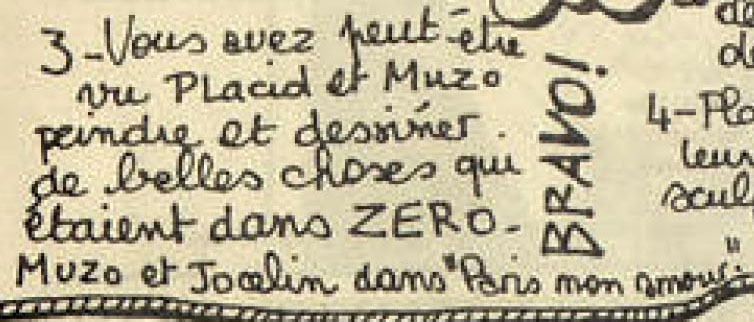 3-Vous avez peut-être
vu Placid et Muzo
peindre et dessiner
de belles choses qui
étaient dans ZERO-
Muzo et Jocelin dans "Paris mon amour"
BRAVO!
de
de
4-Pla
leur
scul